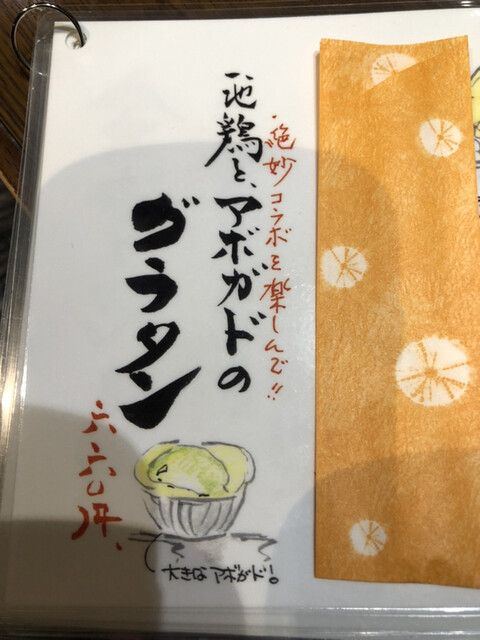 絶妙コラボを楽しんで!!
地鶏と、アボガドの
グラタン
六六〇円、
大きなアボガド!。